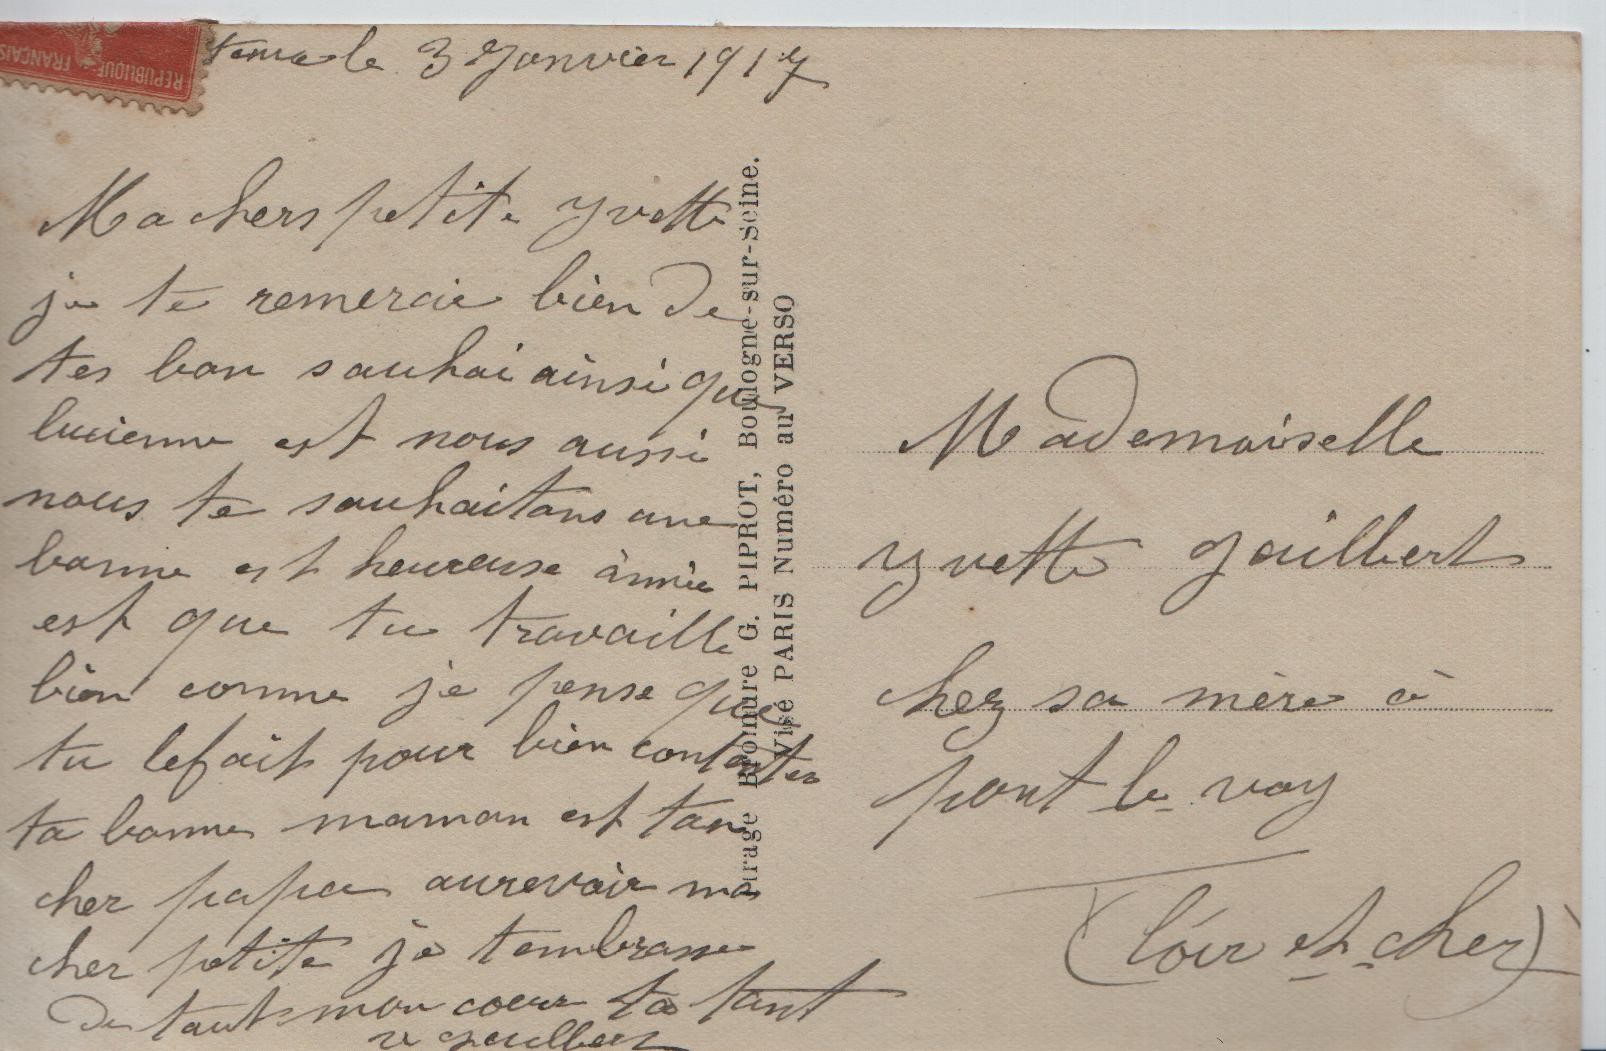 REPUBLIQUE FRANÇAIS
le 3 Janvier 1917
Ma chers petite yvette
je te remercie bien de
tes bon souhai ainsi que
lucienne est nous aussi
nous te souhaitons une
bonne est heureuse année
est que tu travaille
bien comme je pense que
tu lefait pour bien contenter
ta bonne maman est ton
cher papa aurevoir ma
cher petite je tembrasse
de tout mon coeur ta tant
urage Bromure G. PIPROT, Boulogne-sur-Seine.
Visé PARIS Numéro au VERSO
Mademoiselle
yvette Gaillbert
chez sa mère à
pont le voy
(loir et cher)